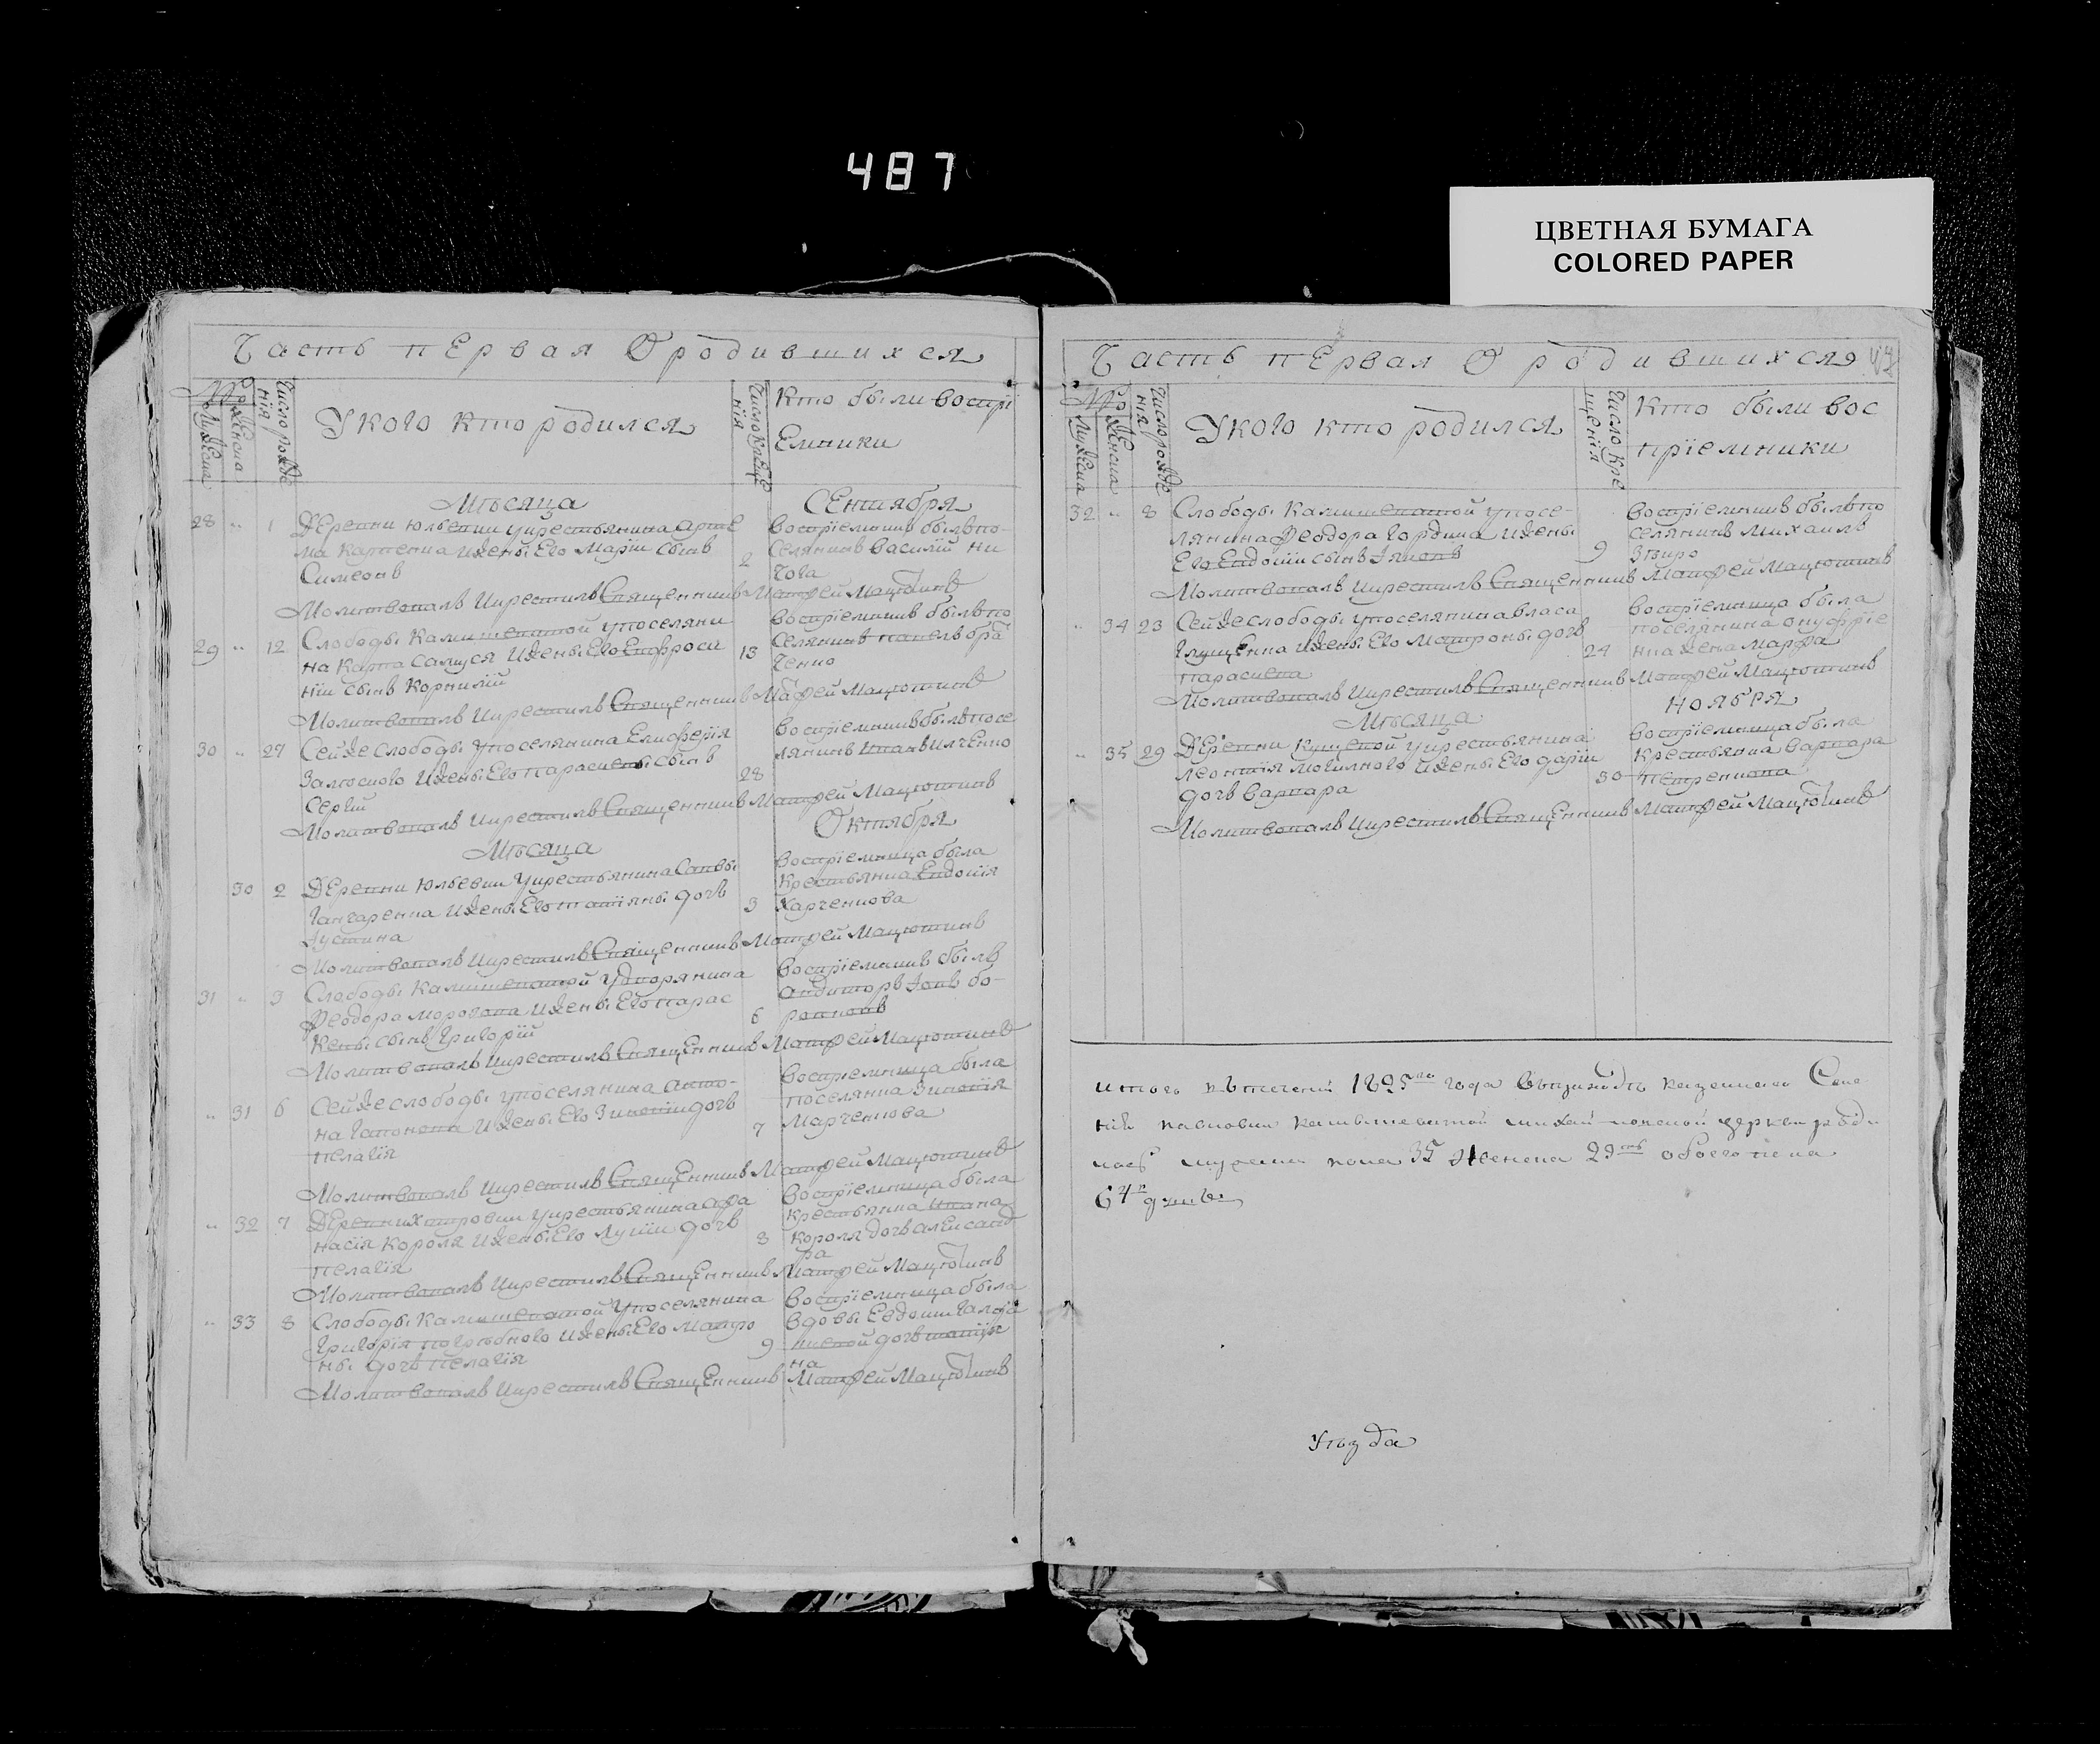 487
ЦВЕТНАЯ БУМАГА
COLORED PAPER
Часть пЕрвая О родившихся
Укого кто родился
Кто были воспрі
Емники
Мѣсяца СЕнтября
28 " 1 ДЕревни Юльевки укрестьянина Арте
ма Карпенка ижены Его Маріи сынъ
Симеонъ
2
воспріемникъ былъ по-
селянинъ Василій Ни
Молитвовалъ икрестилъ СвящЕнникъ Матфей Мацютинъ
29 " 12 Слободы Камышеватой упоселяни
на Карпа Самуся ижены Его Евфроси
ніи сынъ Корнилій
13
воспріемникъ былъ по
селянинъ Павелъ
Молитвовалъ икрестилъ СвящЕнникъ Матфей Мацютинъ
30 " 27 Сейже слободы упоселянина Елисферія
Залюсного ижены Его Параскевы сынъ
Сергій
28
воспріемникъ былъ посе
лянинъ Иванъ Ильченко
Молитвовалъ икрестилъ СвящЕнникъ Матфей Мацютинъ
Мѣсяца Октября
30 2 ДЕревни Юльевки укрестьянина Саввы
Гангаренка ижены Его Татіяны дочь
Іустина
3
воспріемница была
крестьянка Евдокія
Харченкова
Молитвовалъ икрестилъ СвящЕнникъ Матфей Мацютинъ
31 " 3 Слободы Камышеватой удворянина
Феодора Морозова ижены Его Парас
кевы сынъ Григорій
6
воспріемникъ былъ
Аудиторъ Іовъ Бо-
Молитвовалъ икрестилъ СвящЕнникъ Матфей Мацютинъ
" 31 6 Сейже слободы упоселянина Анто-
на Гапонова ижены Его Зиновіи дочь
Пелагія
7
воспріемница была
поселянка Зиновія
Марченкова
Молитвовалъ икрестилъ СвящЕнникъ Матфей Мацютинъ
" 32 7 ДЕревни укрестьянина Афа
насія Короля ижены Его Лукіи дочь
Пелагія
8
воспріемница была
крестьянина Ивана
Короля дочь Александ
ра
Молитвовалъ икрестилъ СвящЕнникъ Матфей Мацютинъ
" 33 8 Слободы Камышеватой упоселянина
Григорія Погрѣбного ижены Его Матро
ны дочь Пелагія
9
воспріемница была
вдовы Евдокіи
дочь Татіяна
Молитвовалъ икрестилъ СвящЕнникъ Матфей Мацютинъ
Часть пЕрвая О родившихся
Укого кто родился
Кто были вос
пріемники
32 " 8 Слободы Камышеватой упосе-
лянина Феодора Гордина ижены
Его Евдокіи сынъ Іяковъ
9
воспріемникъ былъ по
селянинъ Михаилъ
Молитвовалъ икрестилъ СвящЕнникъ Матфей Мацютинъ
" 34 23 Сейже слободы упоселянина Власа
Глущенка ижены Его Матроны дочь
Параскева
24
воспріемница была
поселянина Онуфріе
нка жена Марфа
Молитвовалъ икрестилъ СвящЕнникъ Матфей Мацютинъ
Мѣсяца Ноября
" 35 29 ДЕревни Кущевой укрестьянина
Леонтія Могилного ижены Его Даріи
дочь Варвара
30
воспріемница была
крестьянка Варвара
Петренкова
Молитвовалъ икрестилъ СвящЕнникъ Матфей Мацютинъ
итого втеченіи 1825го года казеннаго Селе
нія Павловки Камышеватой церкви роди
лось мужеска пола 35 женска 29ть обоего пола
64 душъ
Уѣзда